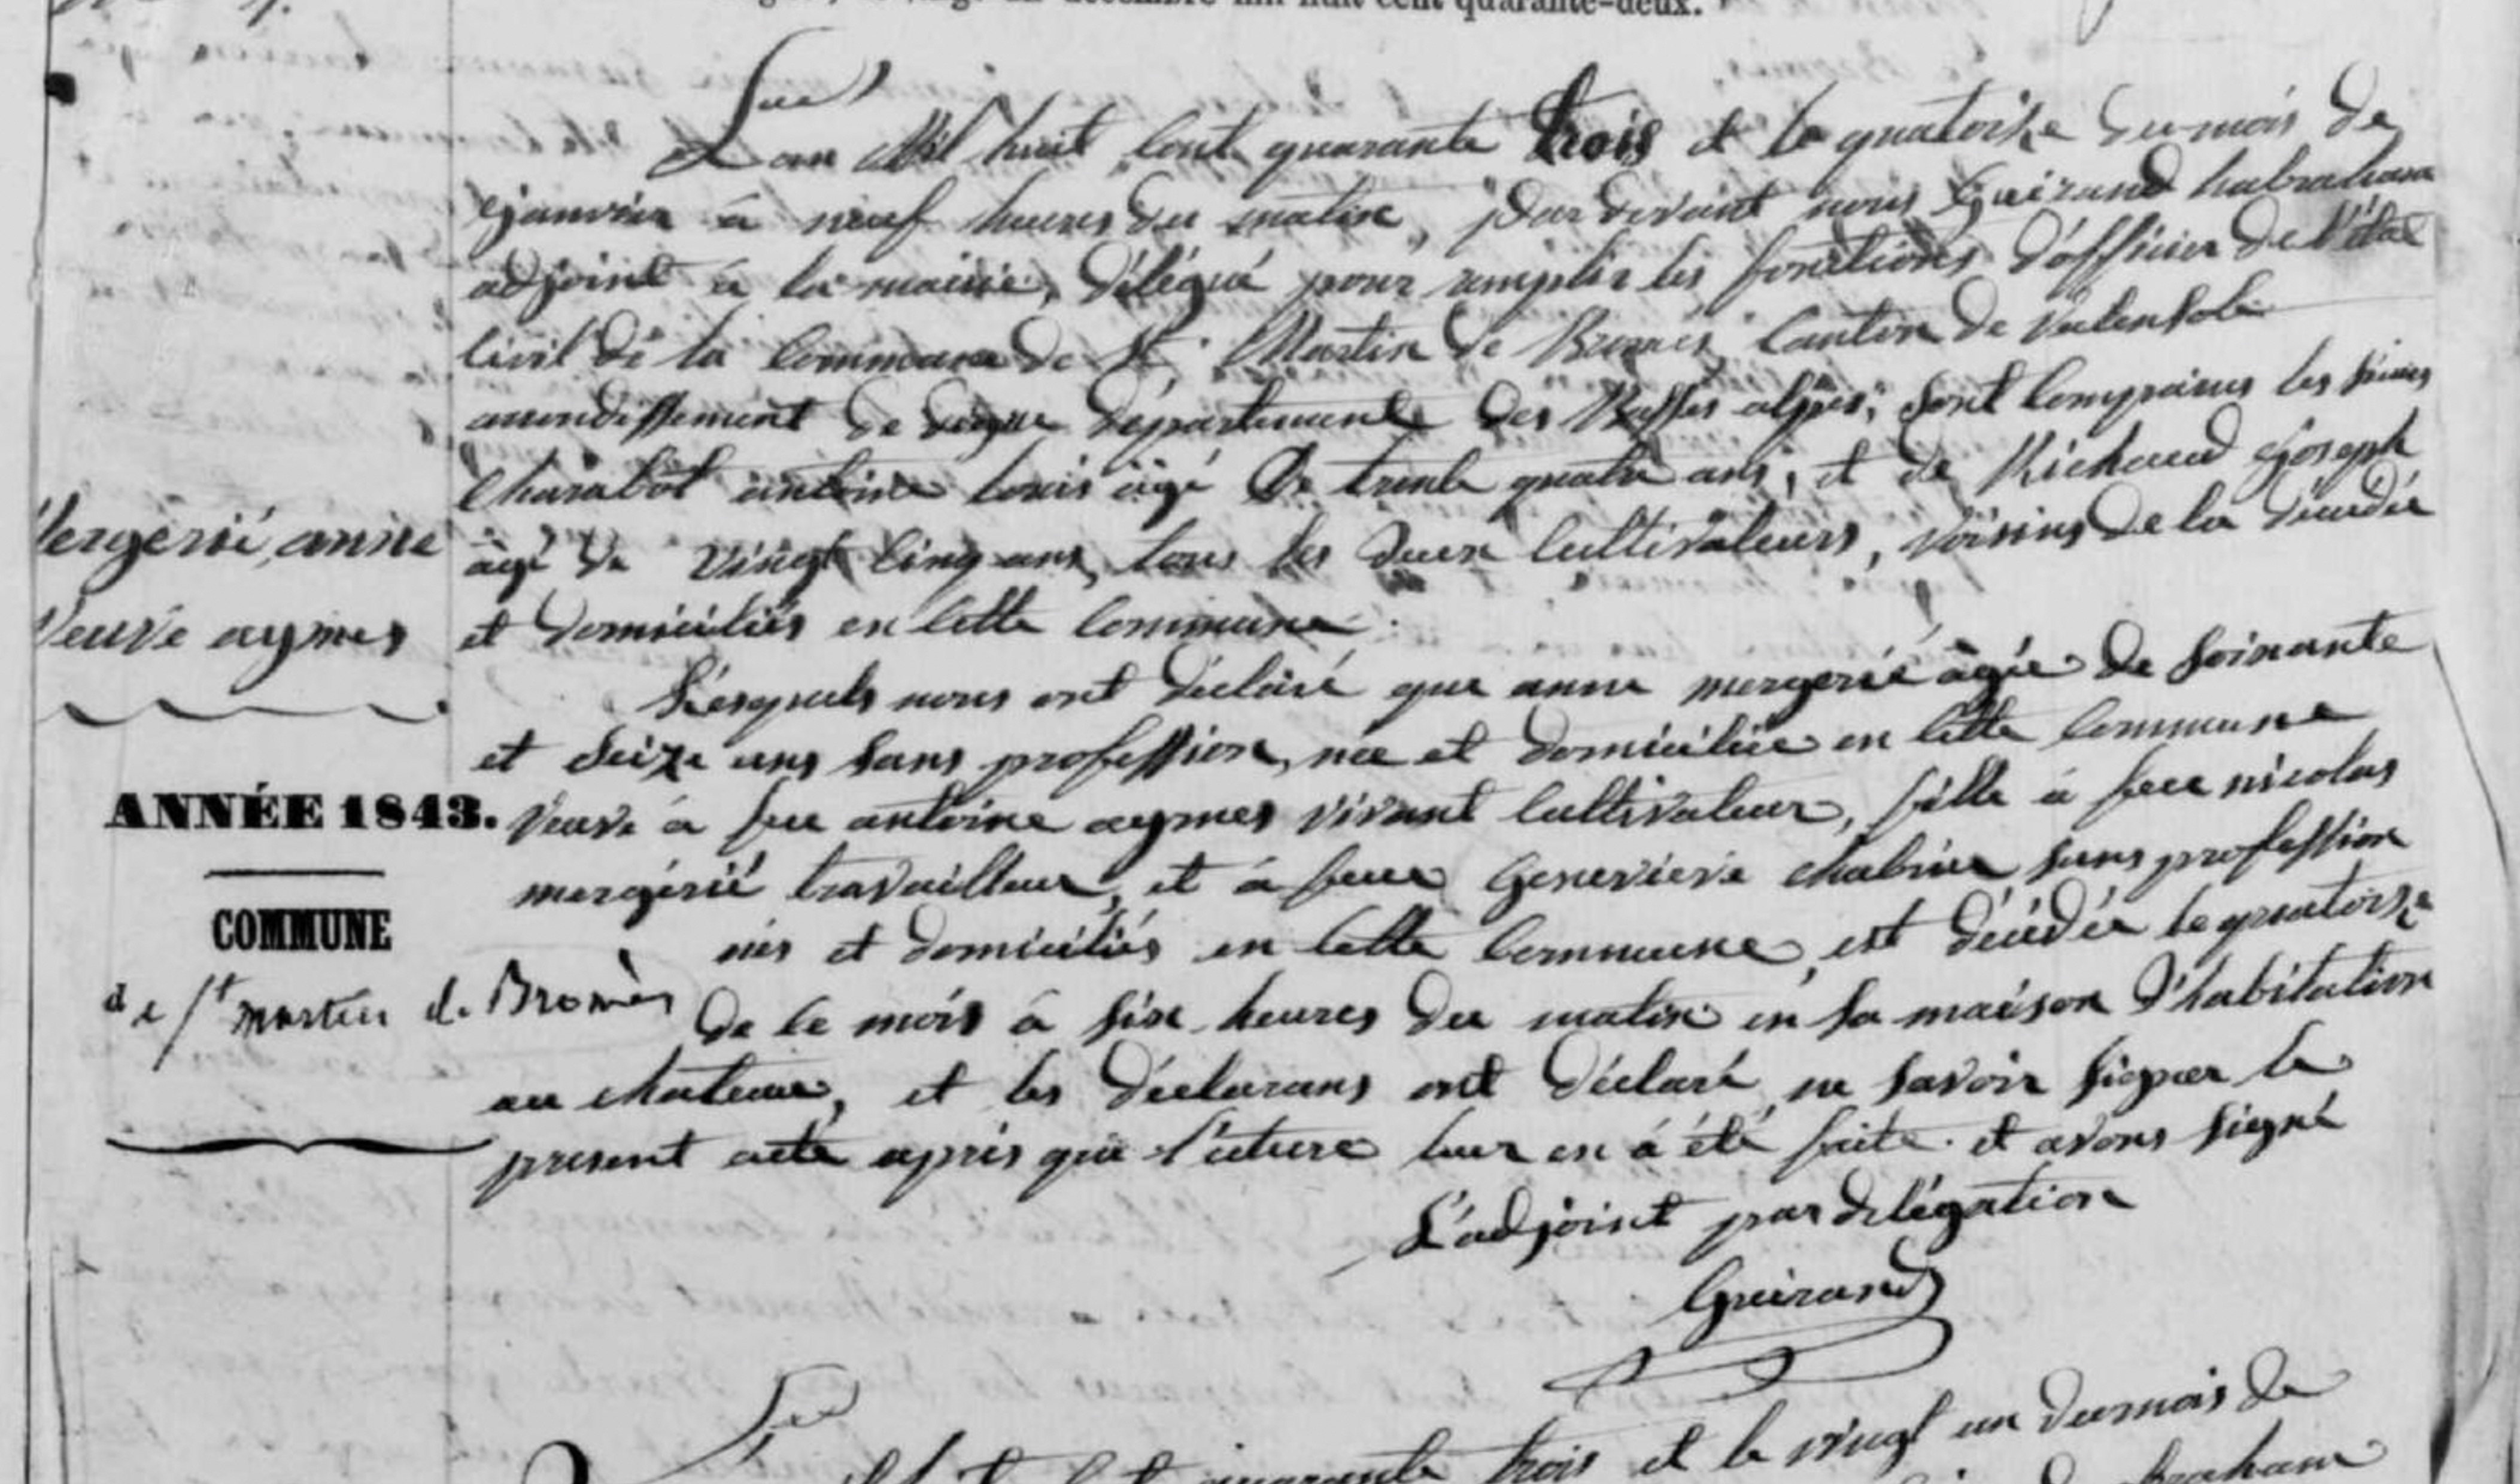 décembre mil huit cent quarante-deux.
L'an Mil huit cent quarante trois et le quatorze du mois de
janvier à neuf heures du matin, pardevant nous Guirand habraham
adjoint à la mairie, délégué pour remplir les fonctions d'officier de l'état
civil de la commune de St Martin de Bromes Canton de Valensole
arrondissement de digne département des Basses alpes, sont comparus les sieurs
Charabot antoine louis âgé de trente quatre ans, et de Richaud Joseph
âgé de vingt cinq ans, tous les deux cultivateurs, voisins de la décédée
et domiciliés en cette commune.
Mergerié, anne
Veuve aymes
Lesquels nous ont déclaré que anne mergerié âgée de soixante
et seize ans sans profession, née et domiciliée en cette commune
veuve à feu antoine aymes vivant cultivateur, fille à feu nicolas
mergérié travailleur, et à feue Genevieve chabrier sans profession
nés et domiciliés en cette commune, est décédée le quatorze
de ce mois à six heures du matin en sa maison d'habitation
au chateau, et les déclarans ont déclaré ne savoir signer le
present acte après que lecture leur en à été faite. et avons signé
L'adjoint par délégation
Guirand
ANNÉE 1843.
COMMUNE
de St martin de Bromès
quarante trois et le vingt un du mois de